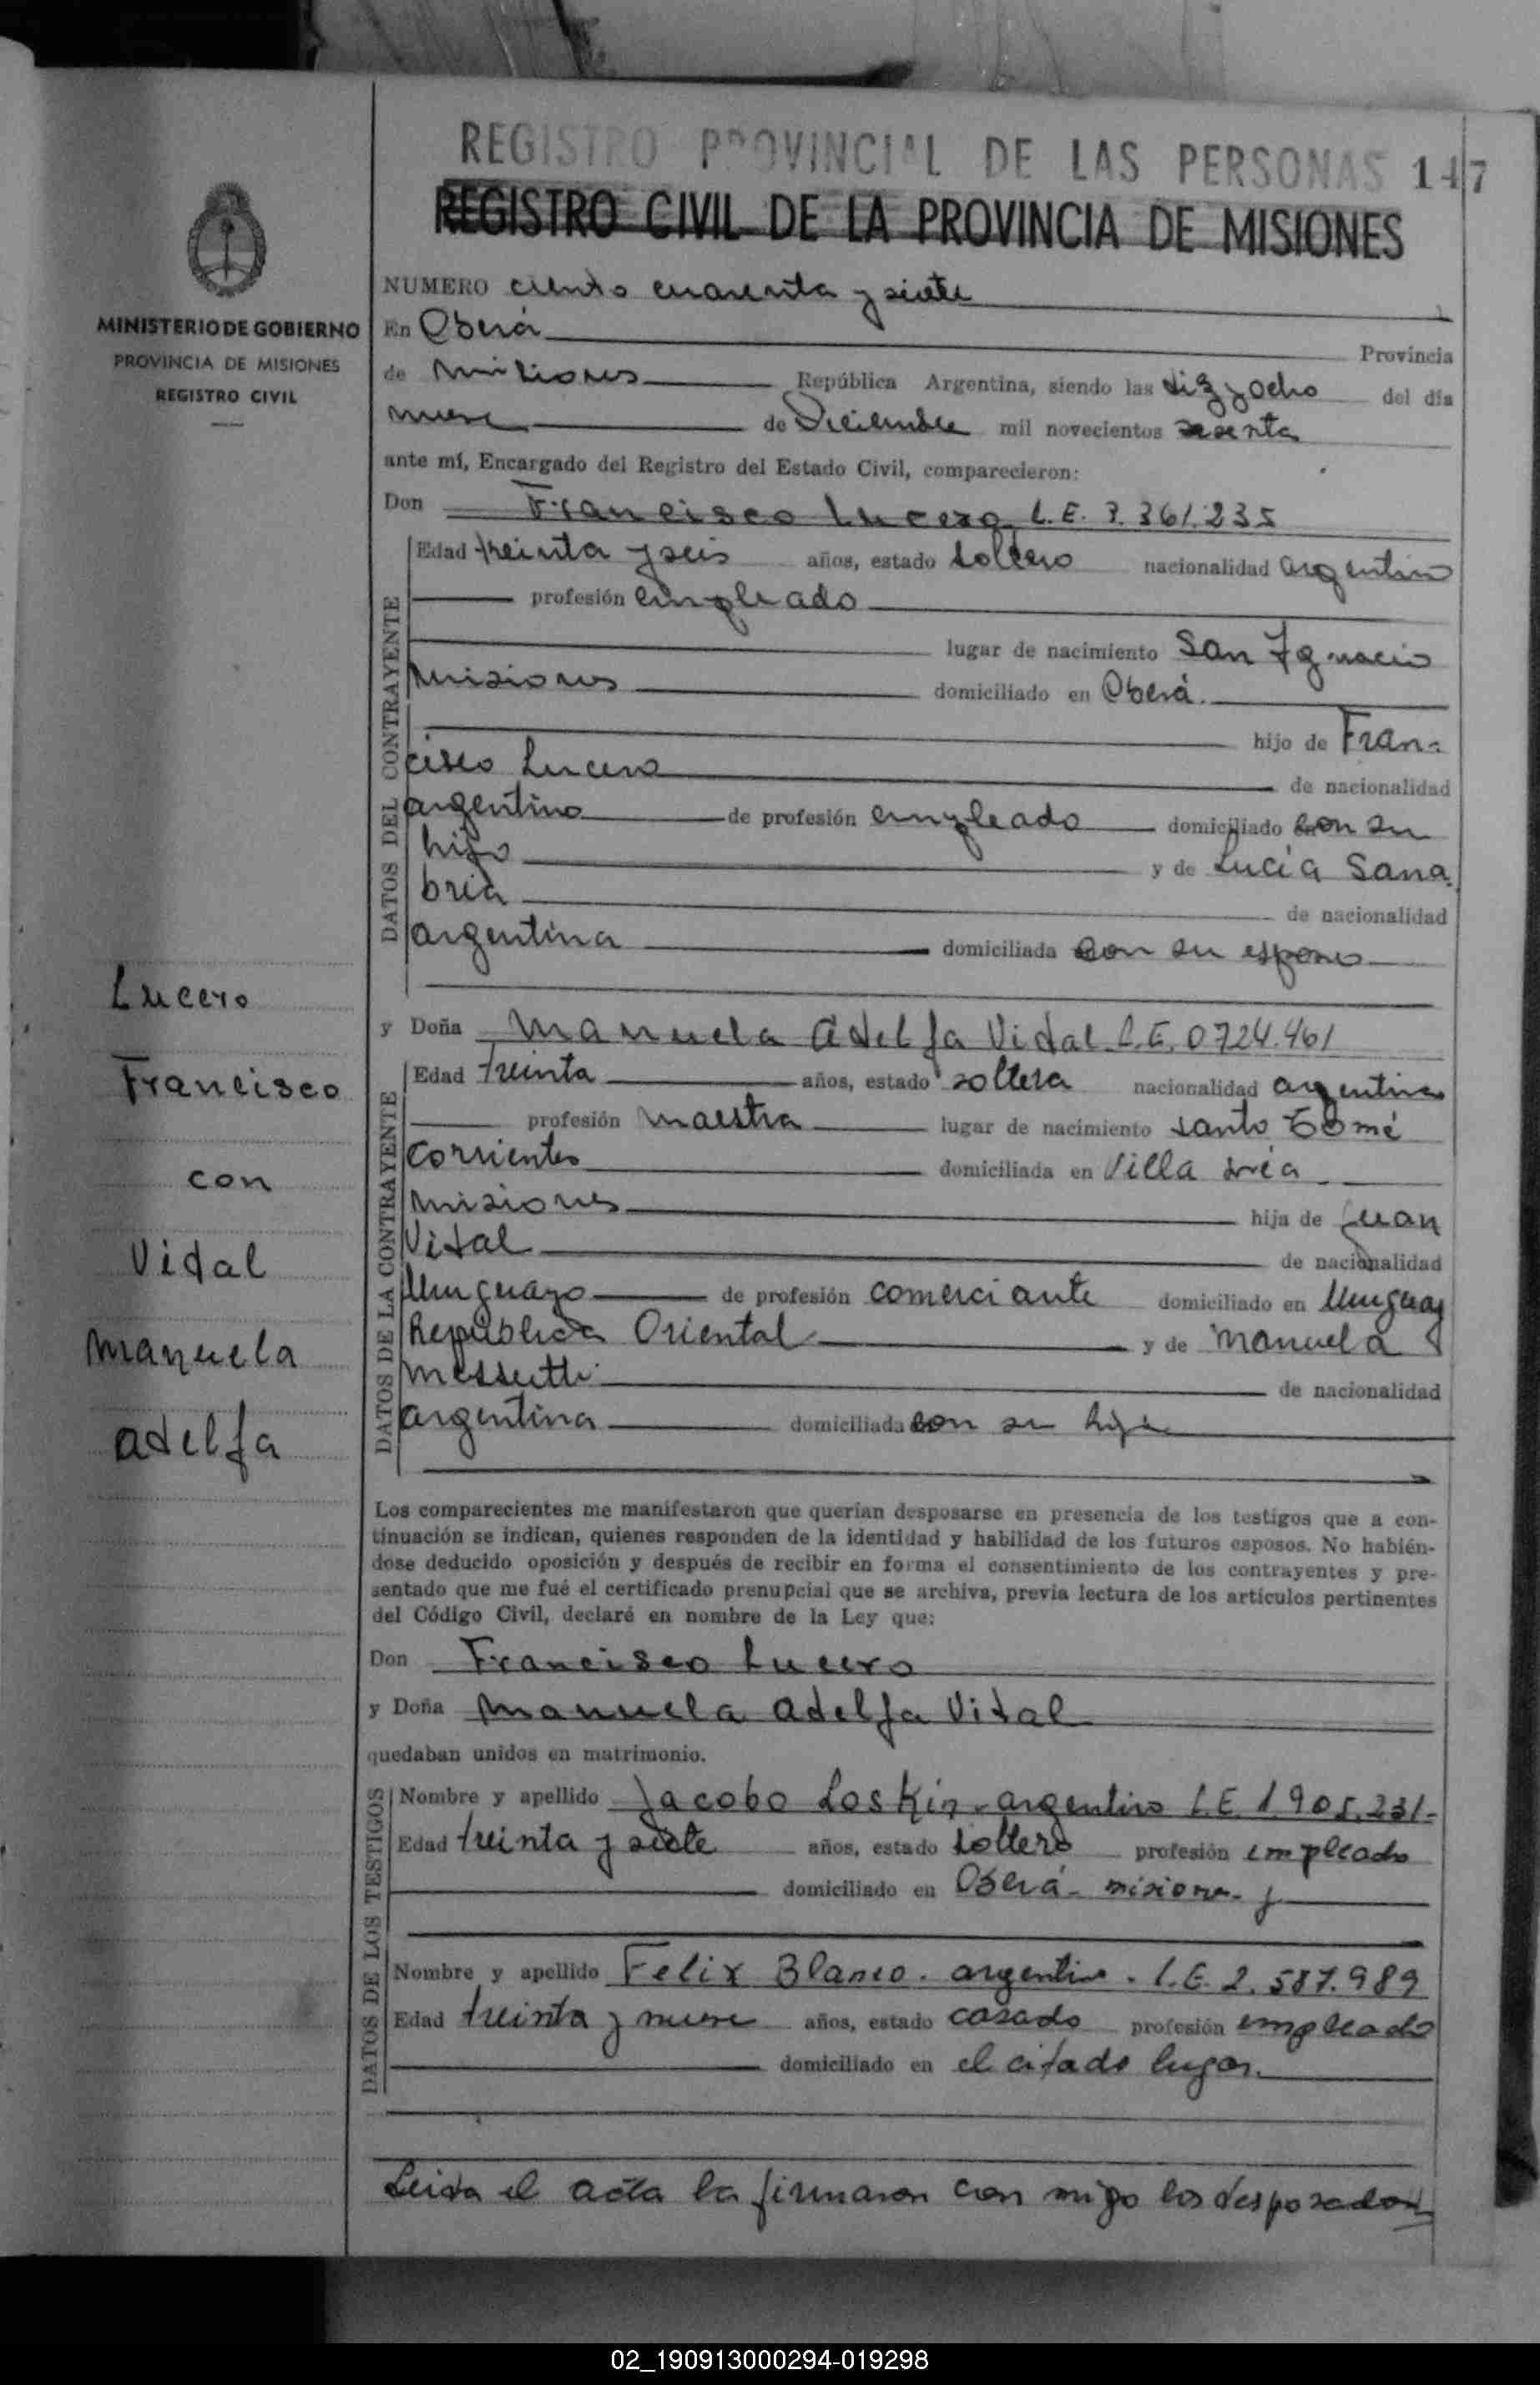 REGISTRO PROVINCIAL DE LAS PERSONAS 147
REGISTRO CIVIL DE LA PROVINCIA DE MISIONES
MINISTERIO DE GOBIERNO
PROVINCIA DE MISIONES
REGISTRO CIVIL
NUMERO ciento cuarenta y siete
En Oberá Provincia
de misiones República Argentina, siendo las diz y ocho del día
nueve de Diciembre mil novecientos sesenta
ante mí, Encargado del Registro del Estado Civil, comparecieron:
Don Francisco Lucero L.E. 7.361.235
DATOS DEL CONTRAYENTE
Edad treinta y seis años, estado soltero nacionalidad argentino
profesión empleado
lugar de nacimiento San Ignacio
Misiones domiciliado en Oberá.
hijo de Fran-
cisco Lucero de nacionalidad
argentino de profesión empleado domiciliado con su
hijo y de Lucía Sana
bria de nacionalidad
argentina domiciliada con su esposo
Lucero
Francisco
con
Vidal
Manuela
Adelfa
y Doña Manuela Adelfa Vidal L.E. 0724.461
DATOS DE LA CONTRAYENTE
Edad treinta años, estado soltera nacionalidad argentina
profesión maestra lugar de nacimiento Santo Tomé
Corrientes domiciliada en Villa
misiones hija de Juan
Vidal de nacionalidad
Uruguayo de profesión comerciante domiciliado en Uruguay
República Oriental y de Manuela
Messutti de nacionalidad
argentina domiciliada con su hija
Los comparecientes me manifestaron que querían desposarse en presencia de los testigos que a con-
tinuación se indican, quienes responden de la identidad y habilidad de los futuros esposos. No habién-
dose deducido oposición y después de recibir en forma el consentimiento de los contrayentes y pre-
sentado que me fué el certificado prenupcial que se archiva, previa lectura de los artículos pertinentes
del Código Civil, declaré en nombre de la Ley que:
Don Francisco Lucero
y Doña Manuela Adelfa Vidal
quedaban unidos en matrimonio.
DATOS DE LOS TESTIGOS
Nombre y apellido Jacobo Loskin - argentino L.E. 1.905.231-
Edad treinta y siete años, estado soltero profesión empleado
domiciliado en Oberá - misiones - y
Nombre y apellido Felix Blanco. argentino. L.E. 2.587.989
Edad treinta y nueve años, estado casado profesión empleado
domiciliado en el citado lugar.
Leida el acta la firmaron con migo los desposados
02_190913000294-019298